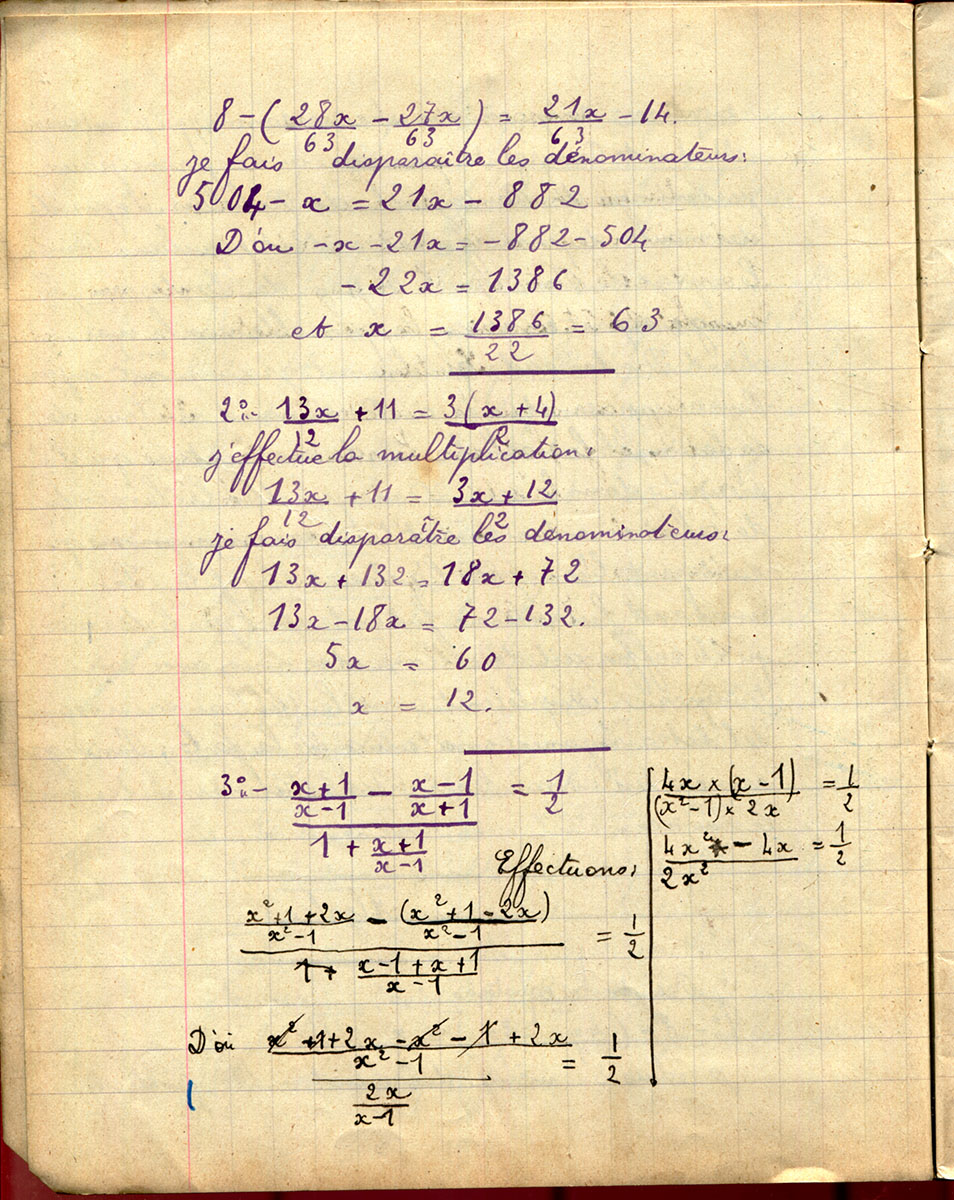 8 - ( 28x/63 - 27x/63 ) = 21x/63 - 14.
je fais disparaître les dénominateurs:
504 - x = 21x - 882
D'où -x - 21x = -882 - 504
- 22x = 1386
et x = 1386/22 = 63
2°:- 13x/12 + 11 = 3(x + 4)/2
j'effectue la multiplication:
13x/12 + 11 = 3x + 12/2
je fais disparaître les dénominateurs:
13x + 132 = 18x + 72
13x - 18x = 72 - 132.
5x = 60
x = 12.
3°:- x+1/x-1 - x-1/x+1 = 1/2
1 + x+1/x-1
Effectuons:
x²+1+2x/x²-1 - (x²+1-2x)/x²-1 = 1/2
1+ x-1+x+1/x-1
D'où x² +1+2x - x² - 1 + 2x = 1/2
x²-1
2x/x-1
4x × (x-1)/(x²-1) × 2x = 1/2
4x² - 4x/2x² = 1/2